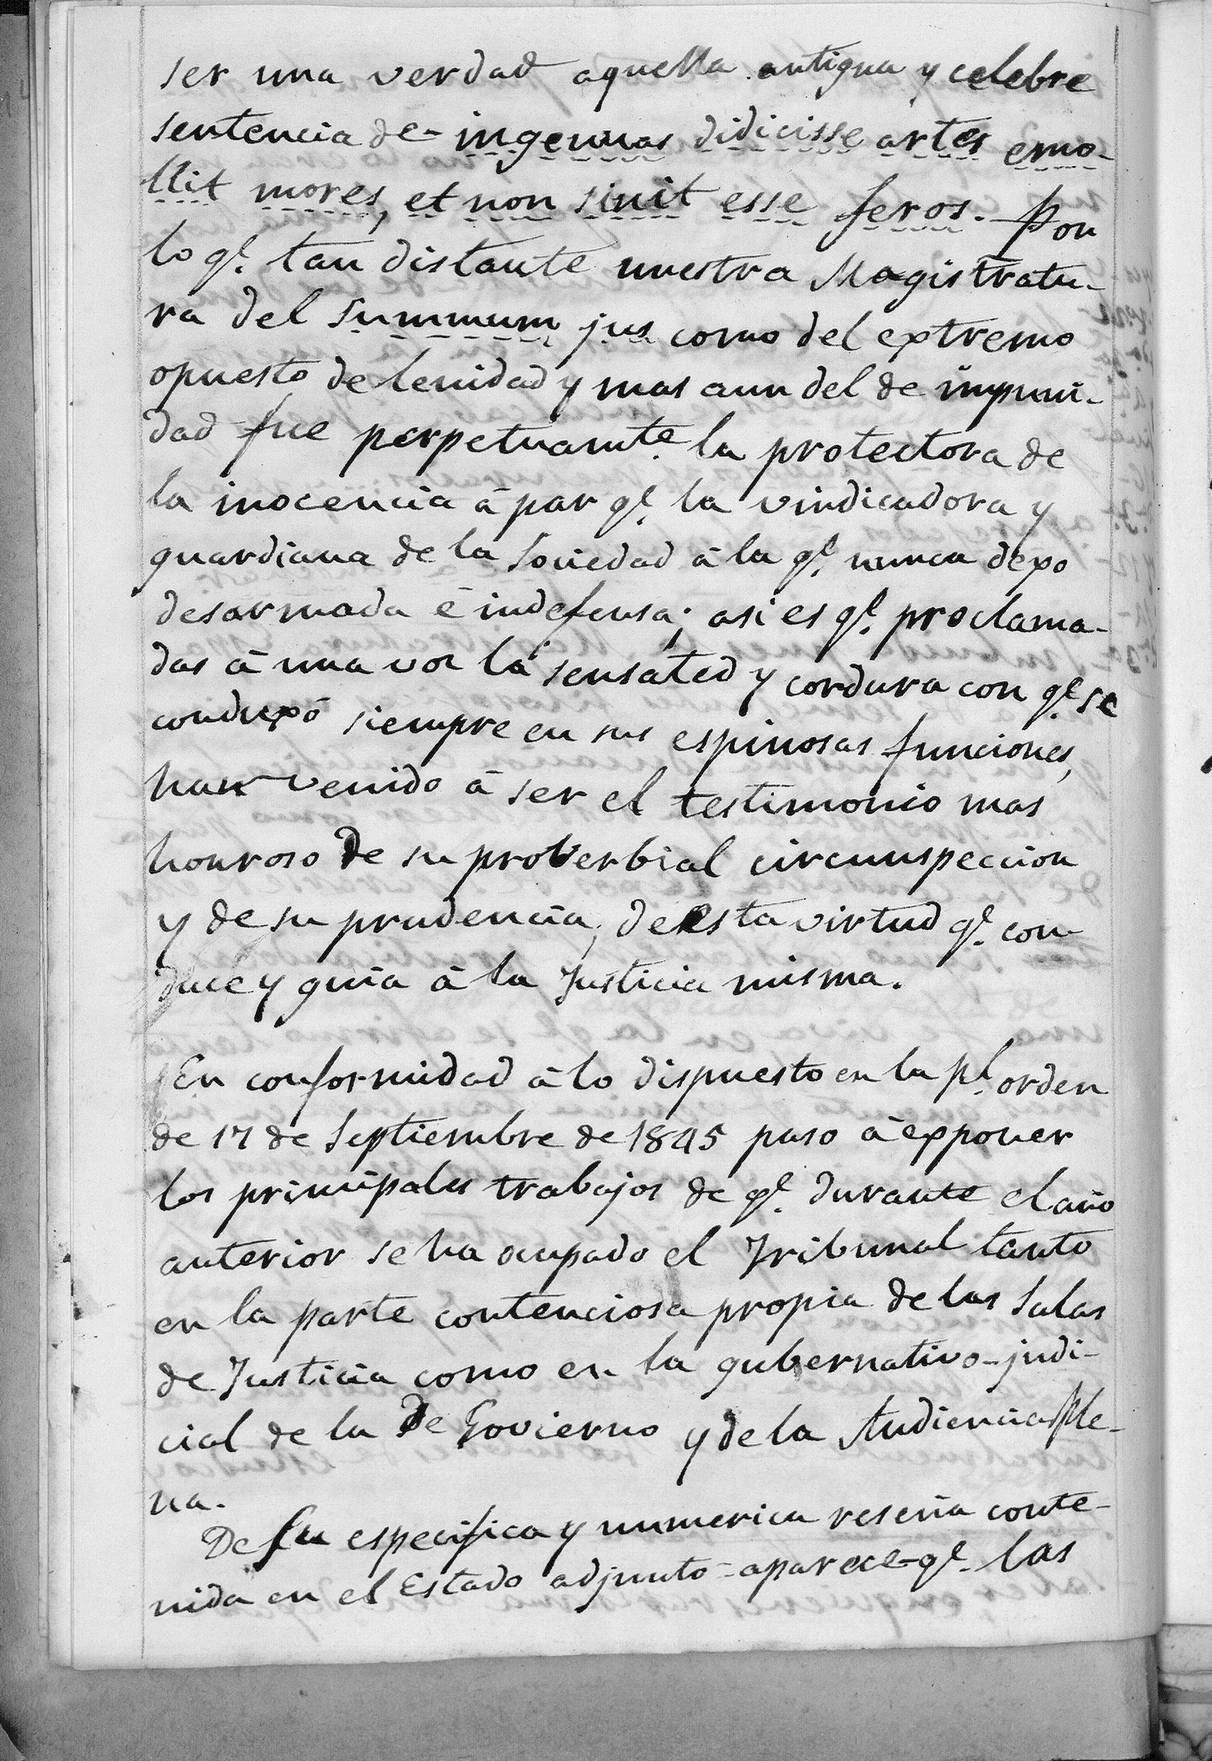 ser una verdad aquella antigua y celebre
sentencia de ingenuas didicisse artes emo-
llit mores, et non sinit esse feros. Por
lo q.e tan distante nuestra Magistratu-
ra del summum jus como del extremo
opuesto de lenidad y mas aun del de impuni-
dad fue perpetuamte. la protectora de
la inocencia á par q.e la vindicadora y
guardiana de la Sociedad á la q.e nunca dexo
desarmada é indefensa; asi es q.e proclama-
das á una voz la sensated y cordura con q.e se
conduxó siempre en sus espinosas funciones,
han venido á ser el testimonio mas
honroso de su proverbial circunspeccion
y de su prudencia, de esta virtud q.e con-
duce y guia á la Justicia misma.
En conformidad á lo dispuesto en la rl. orden
de 17 de Septiembre de 1845 paso á exponer
los principales trabajos de q.e durante el año
anterior se ha ocupado el Tribunal tanto
en la parte contenciosa propia de las Salas
de Justicia como en la gubernativo-judi-
cial de la de Govierno y de la Audiencia Ple-
na.
De su especifica y numerica reseña conte-
nida en el Estado adjunto aparece q.e las